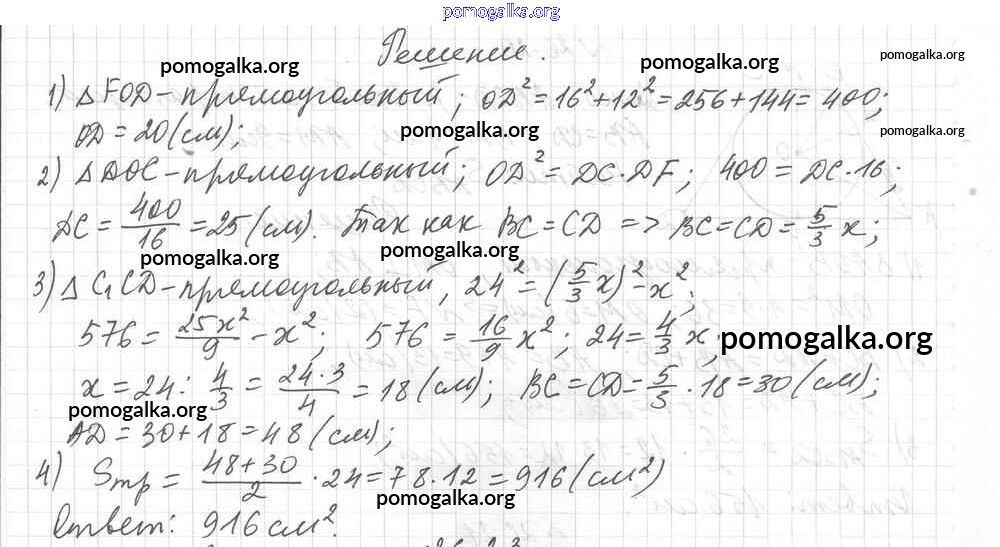 pomogalka.org
Решение.
pomogalka.org
pomogalka.org
pomogalka.org
1) △FOD - прямоугольный; OD² = 16² + 12² = 256 + 144 = 400;
OD = 20 (см);
pomogalka.org
pomogalka.org
2) △DOC - прямоугольный; OD² = DC · DF; 400 = DC · 16;
DC = 400/16 = 25 (см). Так как BC = CD => BC = CD = 5/3 x;
pomogalka.org
pomogalka.org
3) △C₁CD - прямоугольный, 24² = (5/3 x)² - x²;
576 = 25x²/9 - x²; 576 = 16/9 x²; 24 = 4/3 x;
pomogalka.org
x = 24 : 4/3 = 24·3/4 = 18 (см); BC = CD = 5/3 · 18 = 30 (см);
pomogalka.org
AD = 30 + 18 = 48 (см);
pomogalka.org
4) Sтр = 48+30/2 · 24 = 78 · 12 = 916 (см²)
pomogalka.org
Ответ: 916 см².